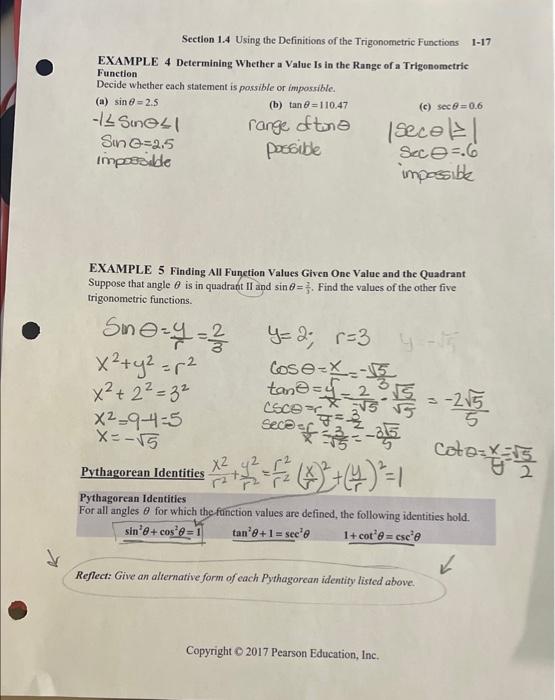 Section 1.4 Using the Definitions of the Trigonometric Functions 1-17
EXAMPLE 4 Determining Whether a Value Is in the Range of a Trigonometric
Function
Decide whether each statement is possible or impossible.
(a) sin θ = 2.5 (b) tan θ = 110.47 (c) sec θ = 0.6
-1 ≤ sinθ ≤ 1 range of tanθ |secθ| ≥ 1
Sin θ = 2.5 possible Sec θ = .6
impossible impossible
EXAMPLE 5 Finding All Function Values Given One Value and the Quadrant
Suppose that angle θ is in quadrant II and sin θ = 2/3. Find the values of the other five
trigonometric functions.
Sin θ = y/r = 2/3 y = 2; r = 3
x² + y² = r² cos θ = x/r = -√5/3
x² + 2² = 3² tan θ = y/x = 2/-√5 · √5/√5 = -2√5/5
x² = 9-4 = 5 csc θ = r/y = 3/2
x = -√5 sec θ = r/x = 3/-√5 = -3√5/5
cot θ = x/y = -√5/2
Pythagorean Identities x²/r² + y²/r² = r²/r² (x/r)² + (y/r)² = 1
Pythagorean Identities
For all angles θ for which the function values are defined, the following identities hold.
sin²θ + cos²θ = 1 tan²θ + 1 = sec²θ 1 + cot²θ = csc²θ
Reflect: Give an alternative form of each Pythagorean identity listed above.
Copyright © 2017 Pearson Education, Inc.